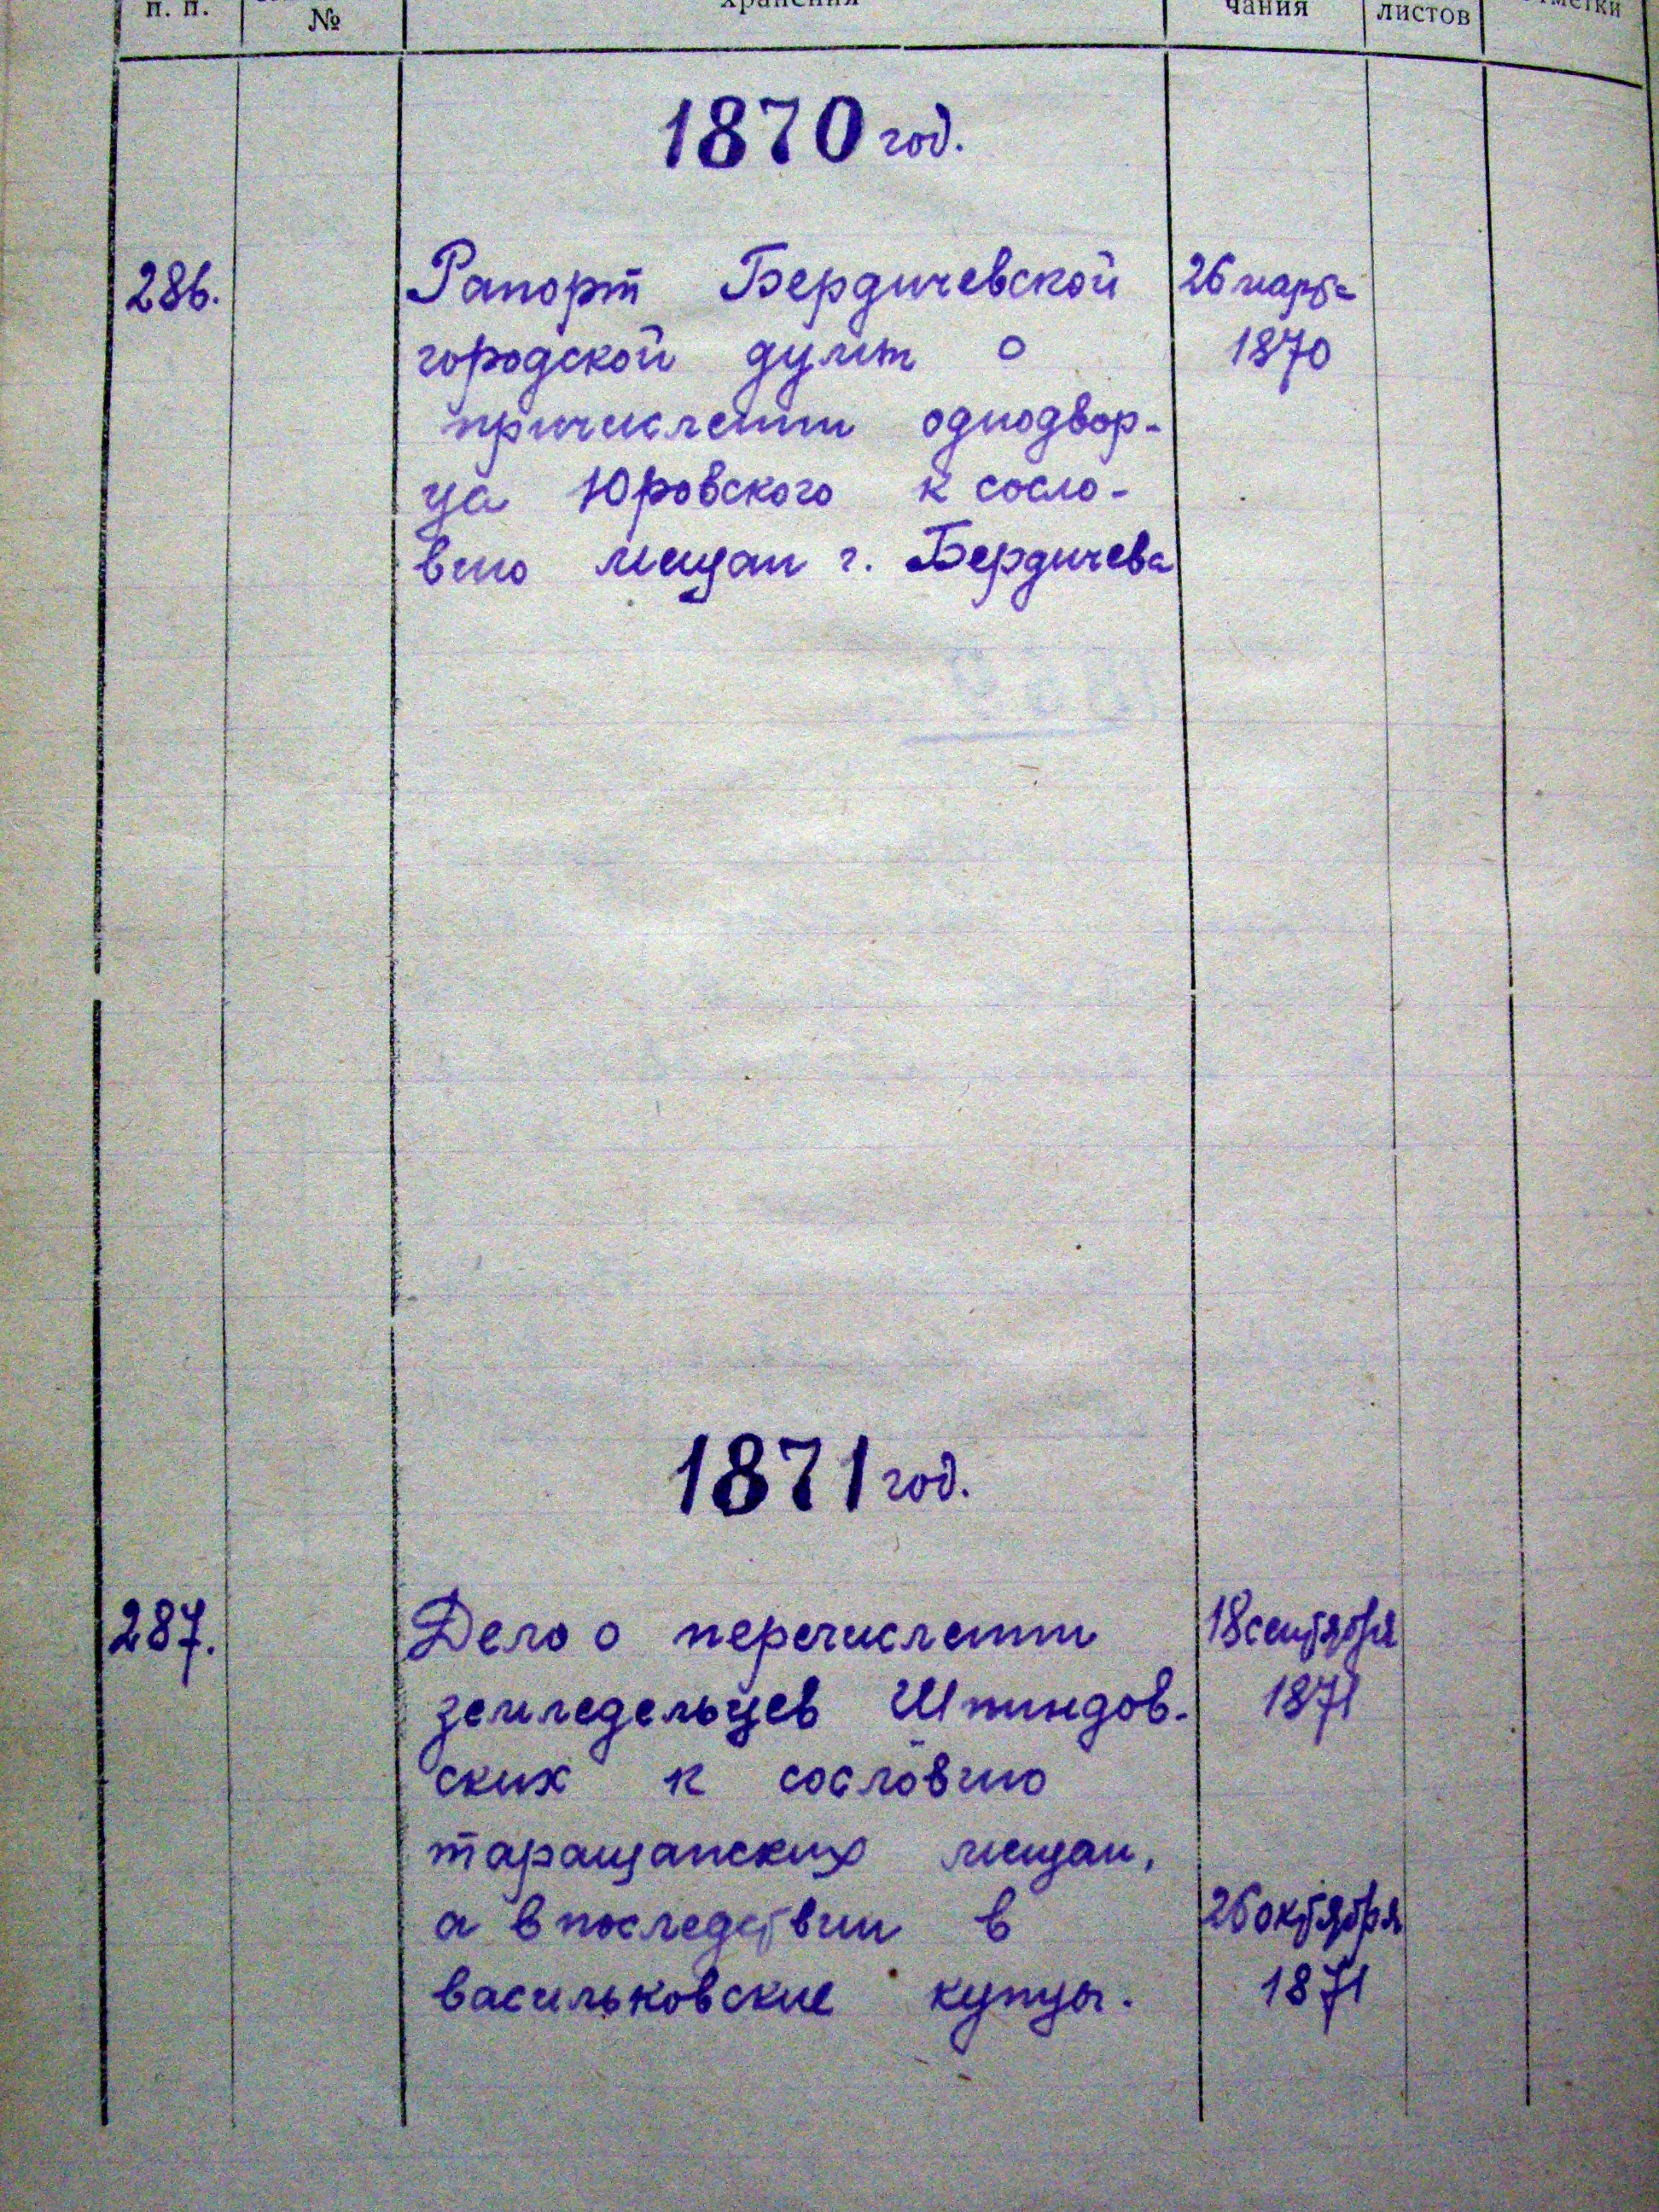 п. п.
№
хранения
чания
листов
1870 год.
286.
Рапорт Бердичевской
26 марта
городской думы о
1870
причислении однодвор-
ца Юровского к сосло-
вию мещан г. Бердичева
1871 год.
287.
Дело о перечислении
18 сентября
земледельцев Шпиндов-
1871
ских к сословию
таращанских мещан,
а впоследствии в
26 октября
васильковские купцы.
1871